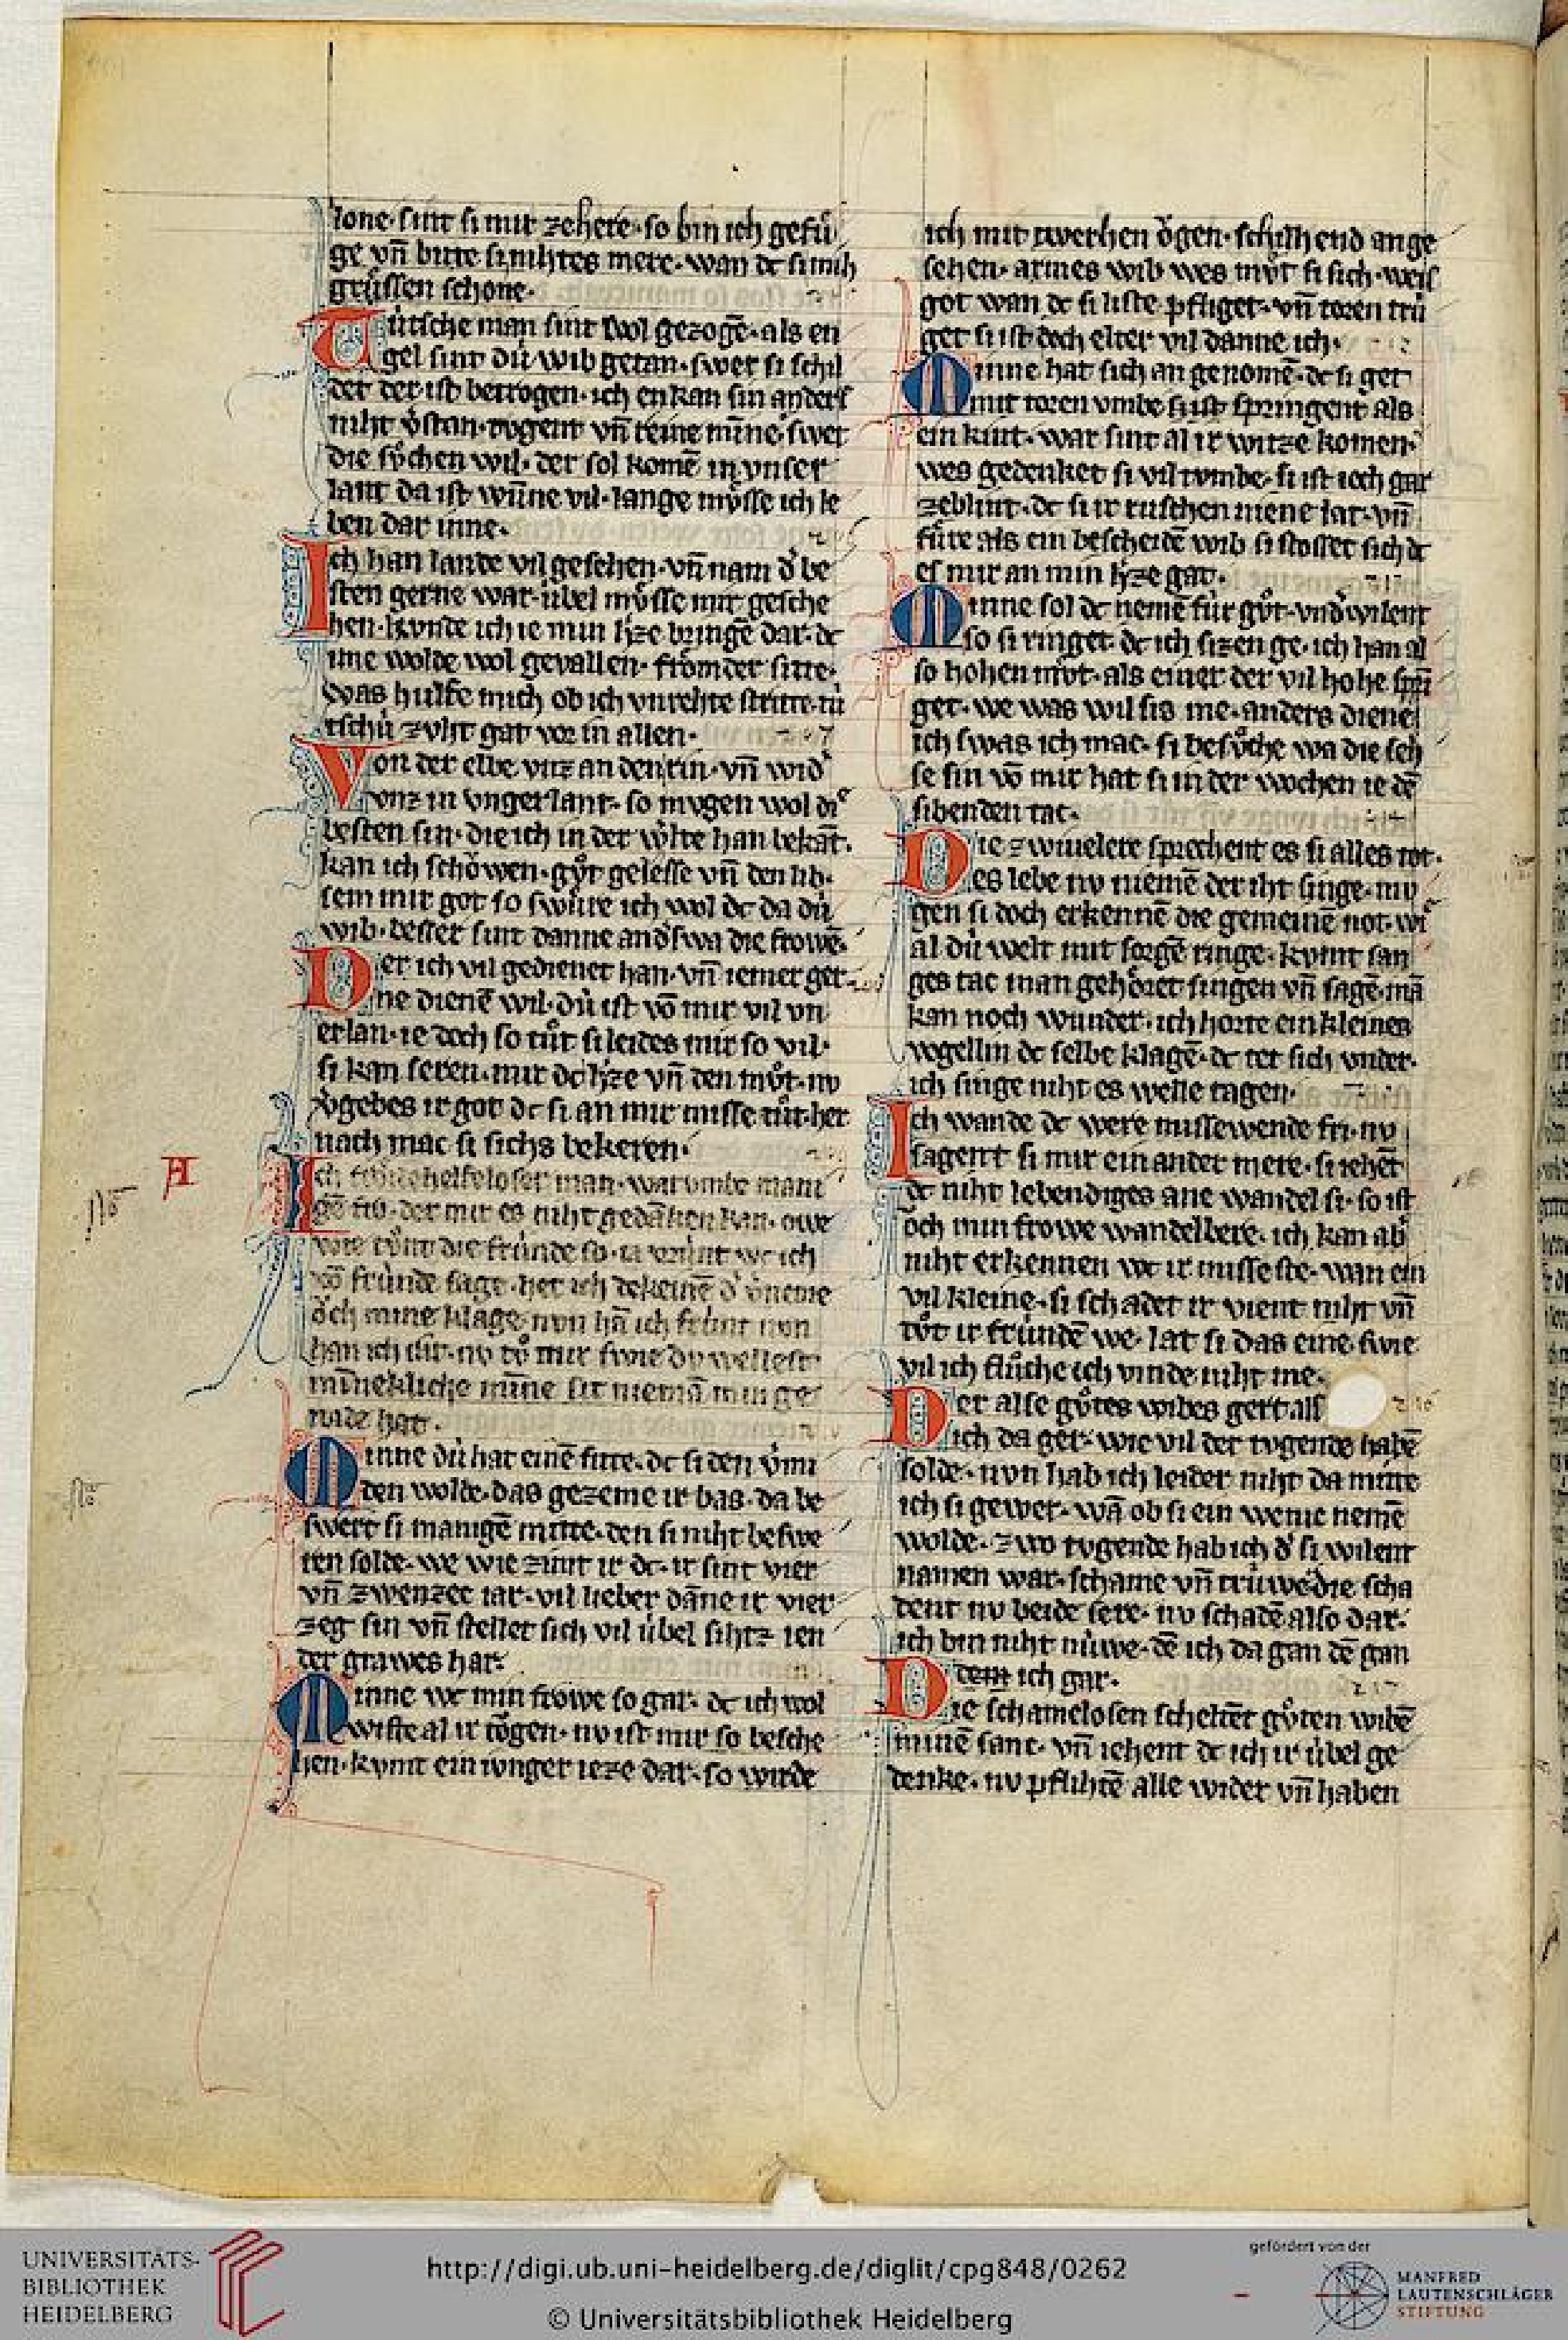 lone· sint si mir ze here· so bin ich gefuͤ
ge vñ bitte si nihtes mere· wan dc si mich
gruͤssen schone·
Tútsche man sint wol gezogē· als en
gel sint dú wib getan· swer si schil
det der ist betrogen· ich enkan sin anders
niht v̓stan· tvgent vñ reine mīne· swer
die sv̊chen wil· der sol komē in vnser
lant da ist wūne vil· lange mv̊sse ich le
ben dar inne·
Ich han lande vil gesehen· vñ nam d̓ be
sten gerne war· úbel mv̊sse mir gesche
hen· kvnde ich ie min h̓ze bringē dar· dc
ime wolde wol gevallen· froͤmder sitte·
was hulfe mich ob ich vnrehte stritte· tú
tschú zvht gat vor in allen·
Von der elbe vnz an den rin· vñ wid̓
vnz in vngerlant· so mvgen wol die
besten sin· die ich in der w̓lte han bekāt·
kan ich schoͤwen· gv̊t gelesse vñ den lib·
sem mir got so swuͤre ich wol dc da dú
wib· besser sint danne and̓swa die frowē·
Der ich vil gedienet han· vñ iemer ger
ne dienē wil· dú ist vō mir vil vn
erlan· ie doch so tuͦt si leides mir so vil·
si kan seren· mir dc h̓ze vñ den mv̊t· nv
v̓gebes ir got dc si an mir misse tuͦt· her
nach mac si sichs bekeren·
A
Ich helfeloser man· war vmbe mani
gē der mir es niht gedanken kan· owe
wie toͮnt die frúnde so· ia vrúnt wc ich
vō frúnde sage· het ich dekeinē d̓ v̓neme
oͮch mine klage nvn hā ich frúnt nvn
han ich rat· nv tv̊ mir swie dv wellest·
mīnekliche mīne sit niemā min ge
nade hat·
Minne dú hat einē sitte· dc si den v̓mi
den wolde· das gezeme ir bas· da be
swert si manigē mitte· den si niht beswe
ren solde· we wie zimt ir dc· ir sint vier
vñ zwenzec iar· vil lieber dāne ir vier
zeg sin vñ stellet sich vil úbel sihtz ien
der grawes har·
Minne wc min frowe so gar· dc ich wol
wiste al ir toͮgen· nv ist mir so besche
hen· kvmt ein ivnger ieze dar· so wirde
ich mit twerhen oͮgen· schilhend ange
sehen· armes wib wes mv̊t si sich· weis
got wan dc si liste pfliget· vñ toren trú
get si ist doch elter vil danne ich·
Minne hat sich an genomē· dc si get
mit toren vmbe si ist springent als
ein kint· war sint al ir witze komen·
wes gedenket si vil tvmbe· si ist ioch gar
zeblint· dc si ir ruschen niene lat· vñ
fuͤre als ein bescheidē wib si stosset sich dc
es mir an min h̓ze gat·
Minne sol dc nemē fúr gv̊t· vnd̓wilent
so si ringet· dc ich sizen ge· ich han al
so hohen mv̊t· als einer der vil hohe spri
get· we was wil sis me· anders diene
ich swas ich mac· si besv̊che wa die seh
se sin vō mir hat si in der wochen ie dē
sibenden tac·
Die zwiuelere sprechent es si alles tot·
es lebe nv niemē der iht singe· mv
gen si doch erkennē die gemeine not· wie
al dú welt mit sorgē ringe· kvmt san
ges tac man gehoͤret singen vñ sagē· mā
kan noch wunder· ich horte ein kleines
vogellin dc selbe klagē· dc tet sich vnder·
ich singe niht es welle tagen·
Ich wande dc were missewende fri· nv
sagent si mir ein ander mere· si iehēt
dc niht lebendiges ane wandel si· so ist
och min frowe wandelbere· ich kan ab̓
niht erkennen wc ir misse ste· wan ein
vil kleine· si schadet ir vient niht vñ
tv̊t ir frúndē we· lat si das eine· swie
vil ich sluͦche ich vinde niht me·
Der alse gv̊tes wibes gert als
ich da ger· wie vil der tvgende habē
solde· nvn hab ich leider niht da mitte
ich si gewer· wā ob si ein wenic nemē
wolde· zwo tvgende hab ich d̓ si wilent
namen war· schame vñ trúwe die scha
dent nv beide sere· nv schadē also dar·
ich bin niht núwe· dē ich da gan dē gan
dem ich gar·
Die schamelosen scheltēt gv̊ten wibē
minē sanc· vñ iehent dc ich ir úbel ge
denke· nv pflihtē alle wider vñ haben
UNIVERSITÄTS-
BIBLIOTHEK
HEIDELBERG
http://digi.ub.uni-heidelberg.de/diglit/cpg848/0262
© Universitätsbibliothek Heidelberg
gefördert von der
MANFRED
LAUTENSCHLÄGER
STIFTUNG